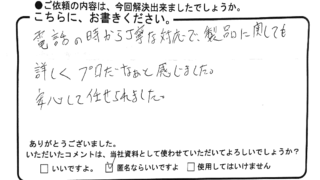 ●ご依頼の内容は、今回解決出来ましたでしょうか。
こちらに、お書きください。
電話の時から丁寧な対応で、製品に関しても
詳しくプロだなぁと感じました。
安心して任せられました。
ありがとうございました。
いただいたコメントは、当社資料として使わせていただいてよろしいでしょうか？
□いいですよ。 ☑匿名ならいいですよ □使用してはいけません